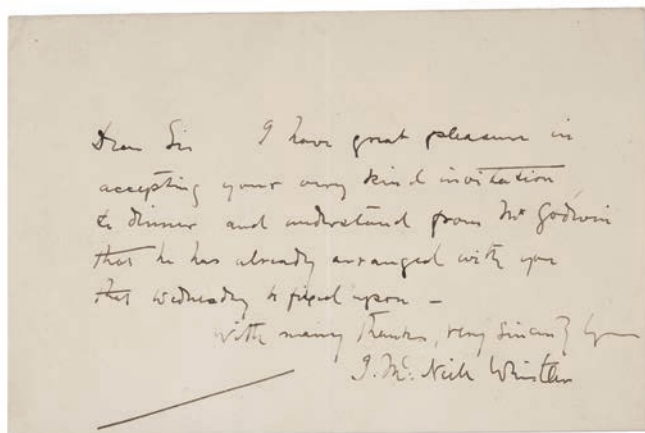 Dear Sir I have great pleasure in
accepting your very kind invitation
to dinner and understand from Mr Godwin
that he has already arranged with you
that Wednesday be fixed upon –
With many thanks, very sincerely yrs
J. McNeill Whistler